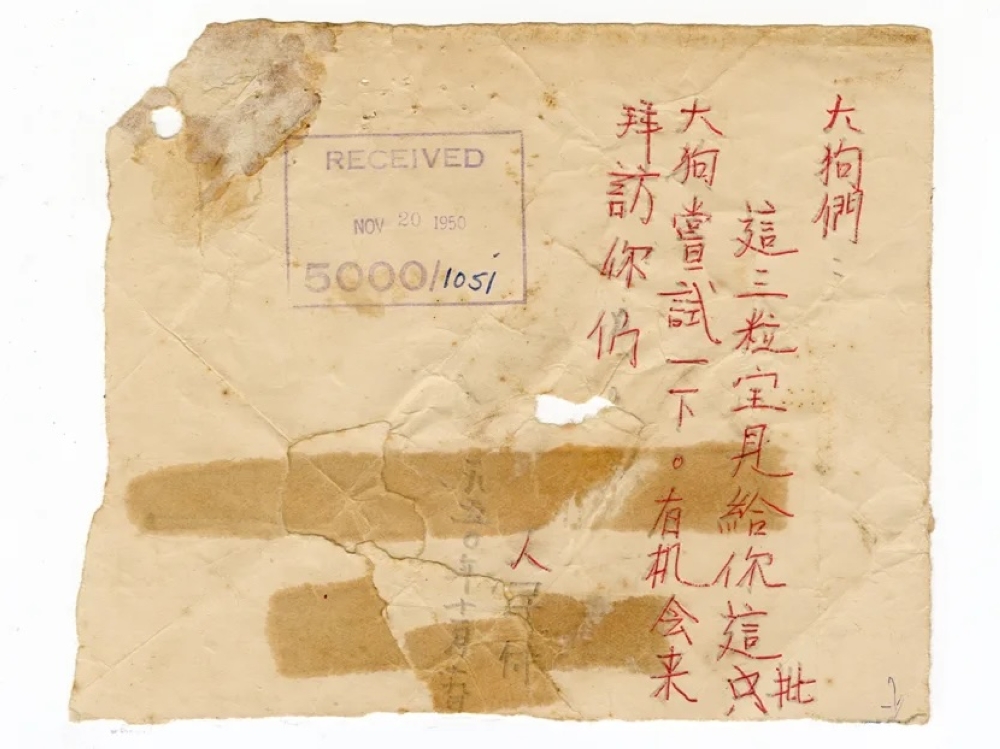 大狗們：
這三粒宝見給你這批
大狗嘗試一下。有机会来
拜訪你们
人
九五0年十月
RECEIVED
NOV 20 1950
5000/1051